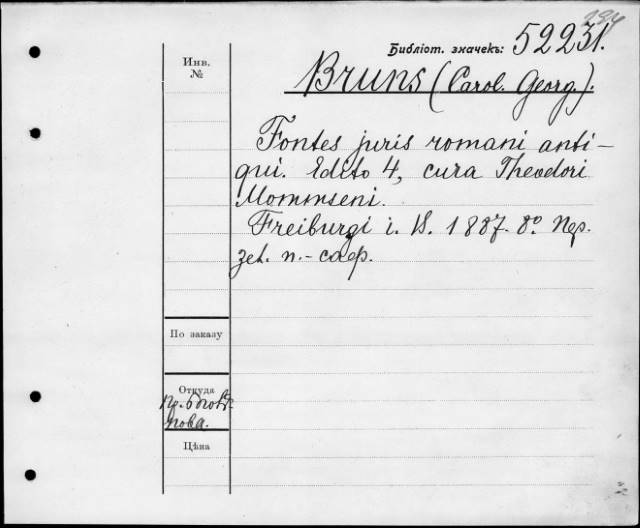 284
Библіот. значекъ: 52231.
Инв.
№
Bruns (Carol. Georg.).
Fontes juris romani anti-
qui. Edito 4, cura Theodori
Mommseni.
Freiburgi i. B. 1887. 8º. Пер.
зел. п.-сафр.
По заказу
Откуда
нова.
Цѣна